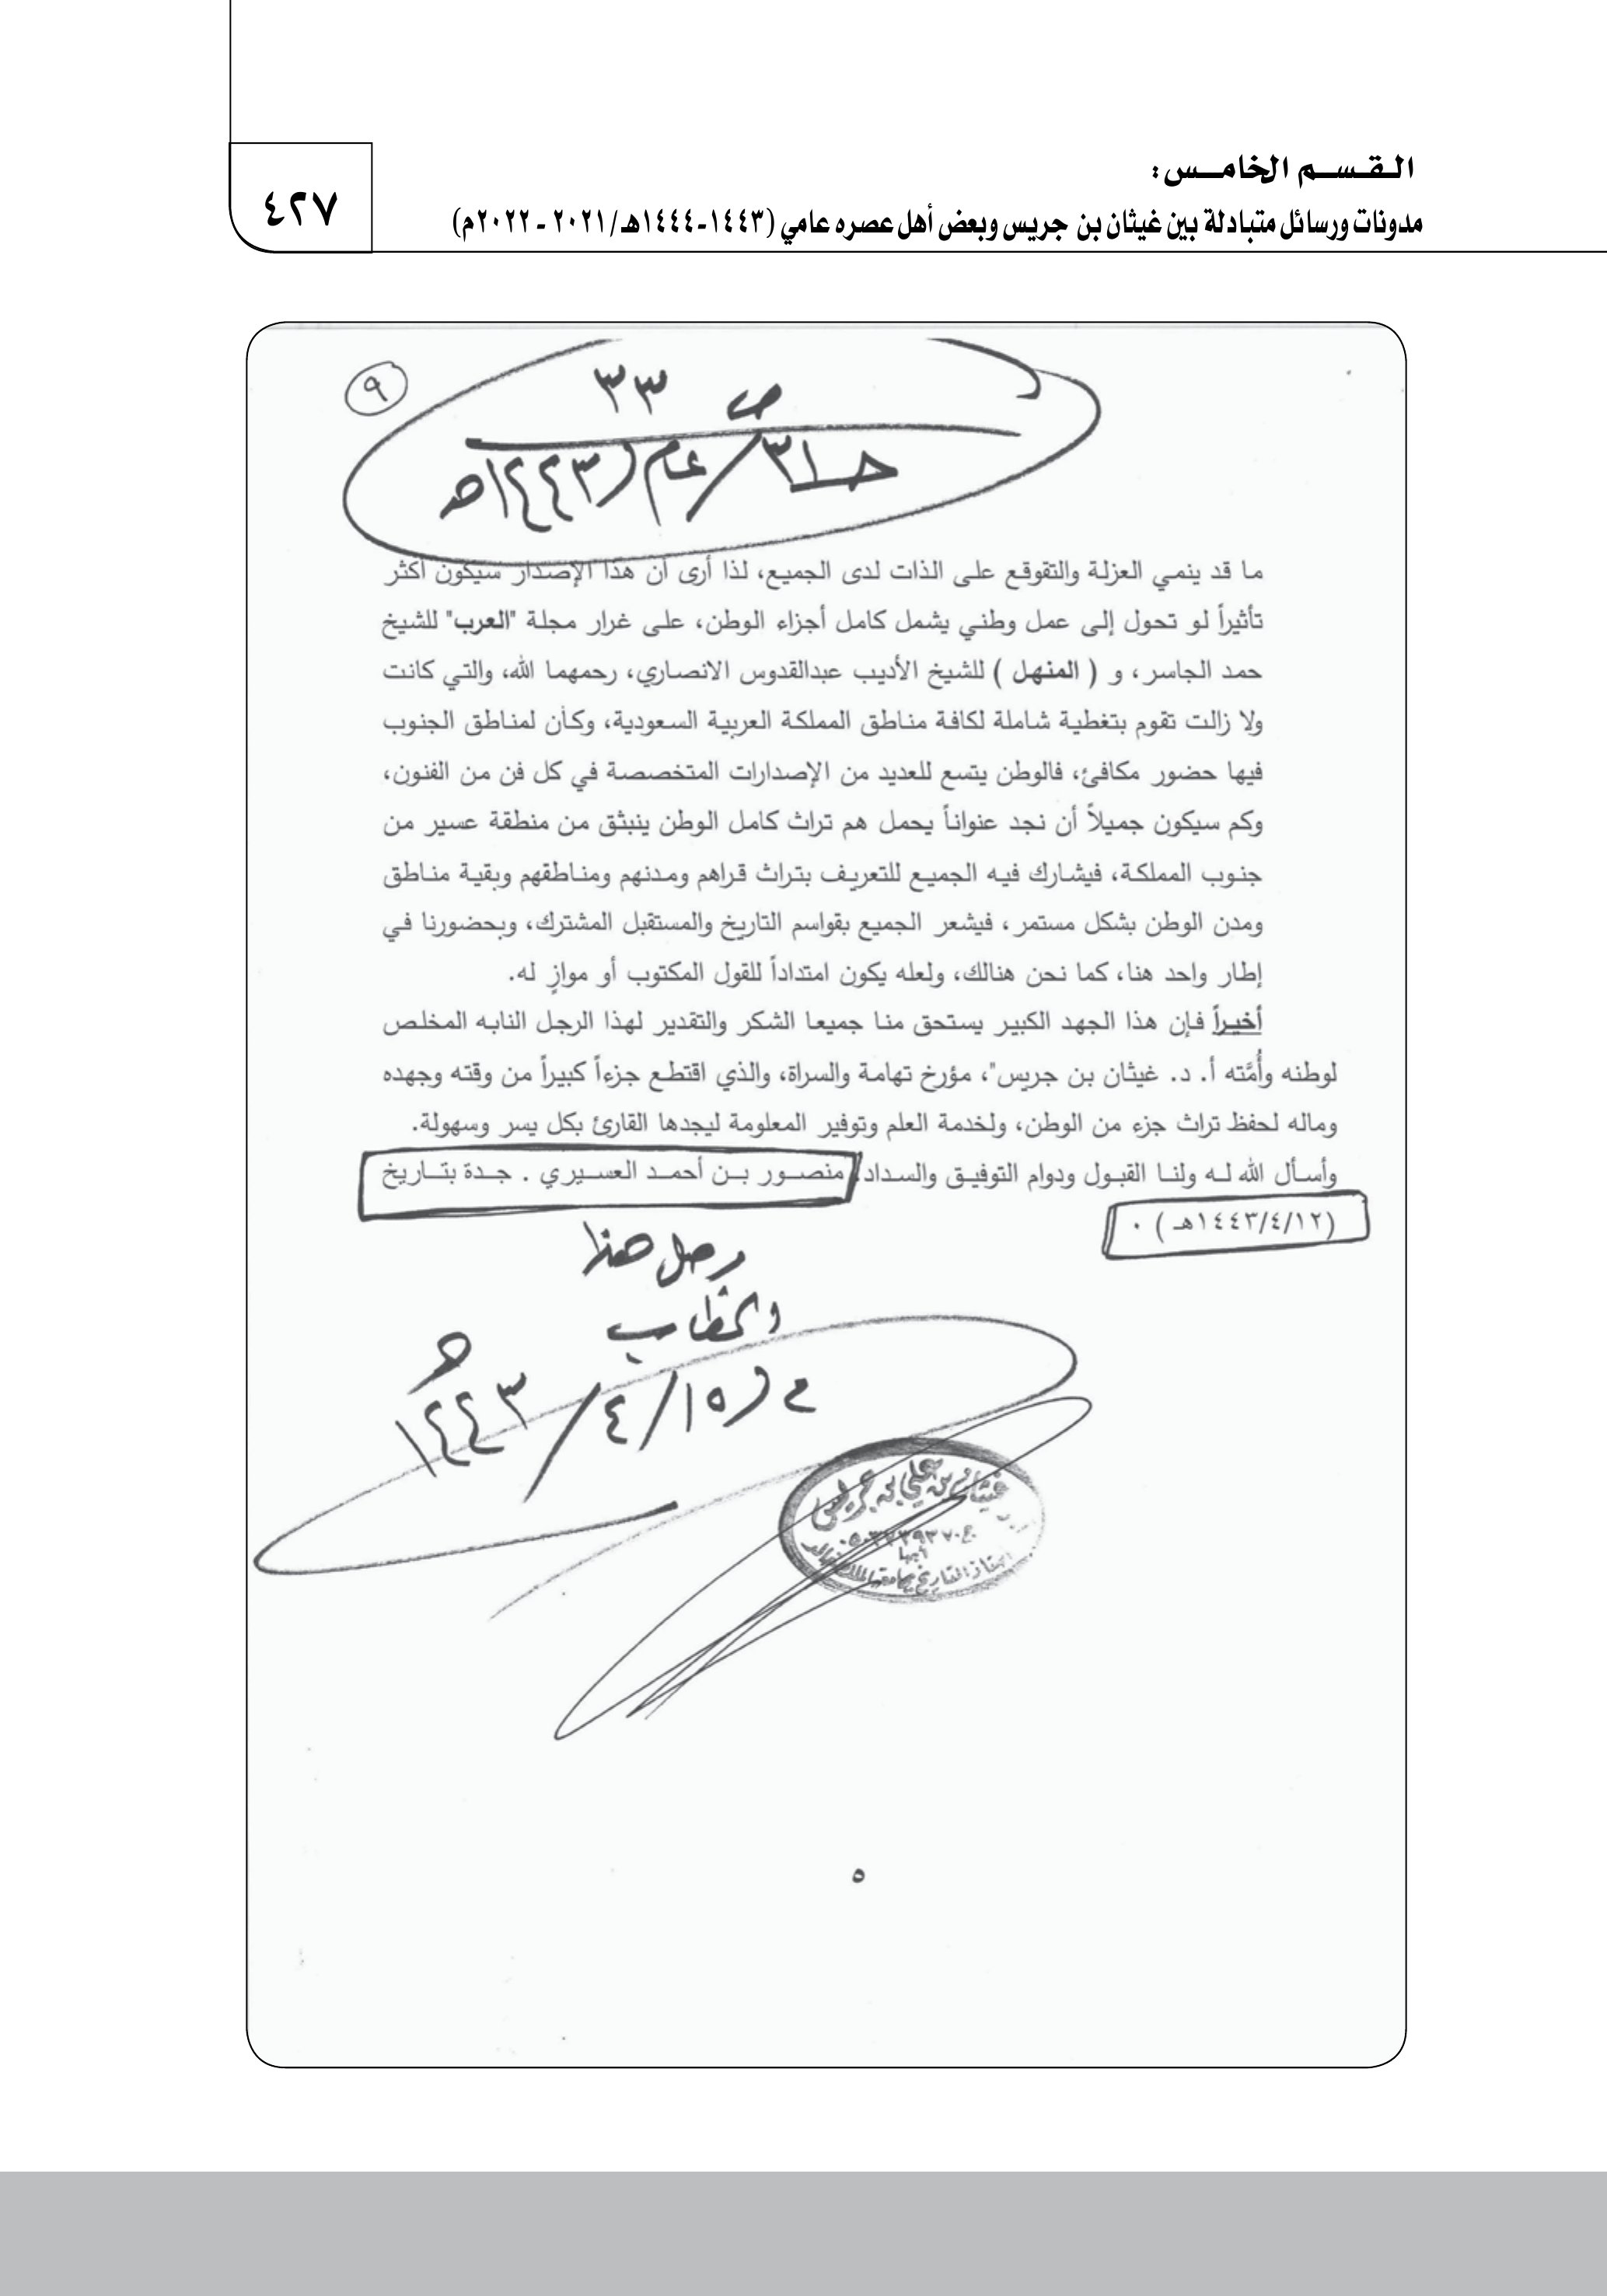 القسم الخامس:
مدونات ورسائل متبادلة بين غيثان بن جريس وبعض أهل عصره عامي (١٤٤٣-١٤٤٤هـ/ ٢٠٢١ - ٢٠٢٢م)
٤٢٧
٩
ص ٣٣
حـ٣١/ عام (١٤٤٣هـ
ما قد ينمي العزلة والتقوقع على الذات لدى الجميع، لذا أرى أن هذا الإصدار سيكون أكثر
تأثيراً لو تحول إلى عمل وطني يشمل كامل أجزاء الوطن، على غرار مجلة "العرب" للشيخ
حمد الجاسر، و ( المنهل ) للشيخ الأديب عبدالقدوس الانصاري، رحمهما الله، والتي كانت
ولا زالت تقوم بتغطية شاملة لكافة مناطق المملكة العربية السعودية، وكأن لمناطق الجنوب
فيها حضور مكافئ، فالوطن يتسع للعديد من الإصدارات المتخصصة في كل فن من الفنون،
وكم سيكون جميلاً أن نجد عنواناً يحمل هم تراث كامل الوطن ينبثق من منطقة عسير من
جنوب المملكة، فيشارك فيه الجميع للتعريف بتراث قراهم ومدنهم ومناطقهم وبقية مناطق
ومدن الوطن بشكل مستمر، فيشعر الجميع بقواسم التاريخ والمستقبل المشترك، وبحضورنا في
إطار واحد هنا، كما نحن هنالك، ولعله يكون امتداداً للقول المكتوب أو موازٍ له.
أخيراً فإن هذا الجهد الكبير يستحق منا جميعا الشكر والتقدير لهذا الرجل النابه المخلص
لوطنه وأُمَّته أ. د. غيثان بن جريس"، مؤرخ تهامة والسراة، والذي اقتطع جزءاً كبيراً من وقته وجهده
وماله لحفظ تراث جزء من الوطن، ولخدمة العلم وتوفير المعلومة ليجدها القارئ بكل يسر وسهولة.
وأسأل الله له ولنا القبول ودوام التوفيق والسداد، منصور بن أحمد العسيري . جدة بتاريخ
(١٤٤٣/٤/١٢هـ ) .
وصل هذا
الخطاب
في ١٥/ ٤/ ١٤٤٣هـ
غيثان بن علي بن جريس
أبها
أستاذ التاريخ بجامعة الملك خالد
٥